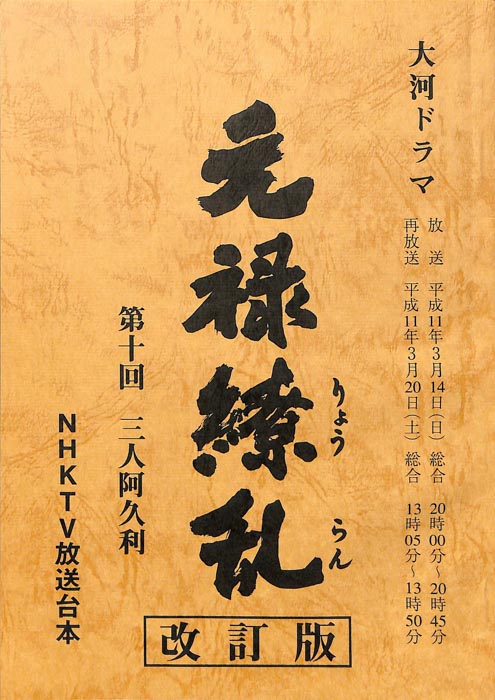 大河ドラマ
放送 平成11年3月14日(日) 総合 20時00分~20時45分
再放送 平成11年3月20日(土) 総合 13時05分~13時50分
元禄繚乱
りょう らん
改訂版
第十回 三人阿久利
NHKTV放送台本